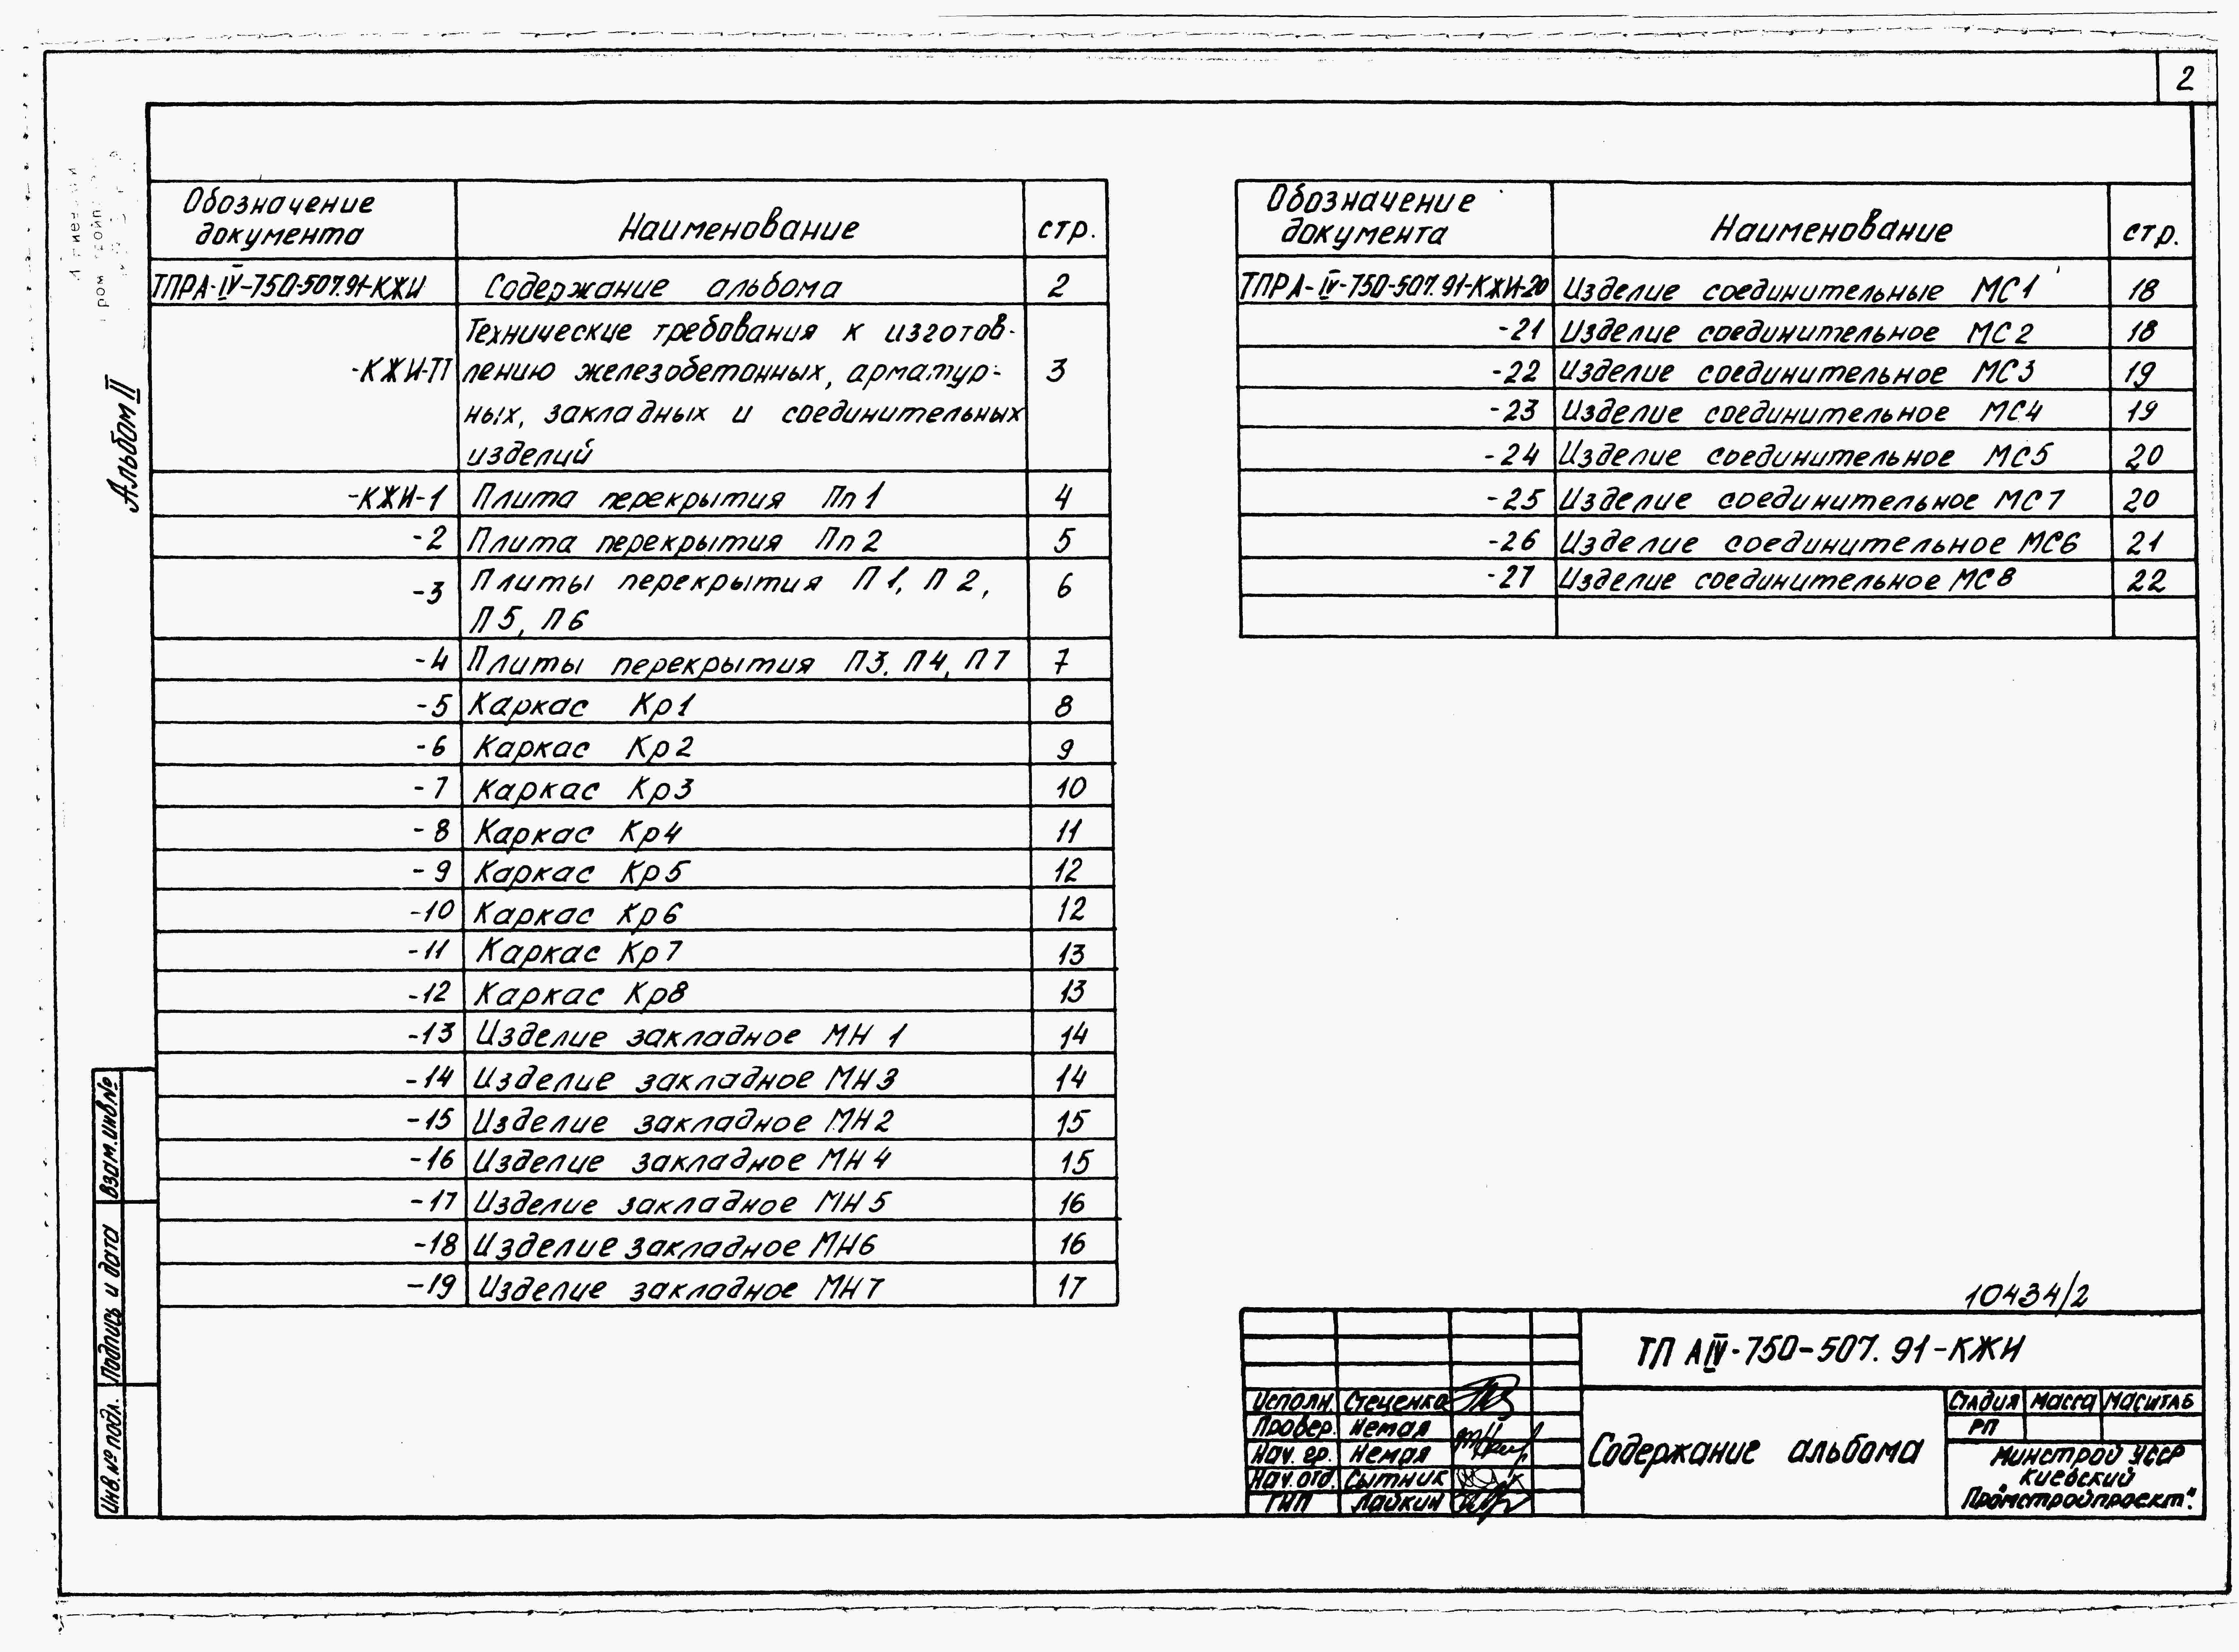 2
Альбом II
Обозначение документа Наименование стр.
ТПРА-IV-750-507.91-КЖИ Содержание альбома 2
-КЖИ-ТТ Технические требования к изготов-
лению железобетонных, арматур-
ных, закладных и соединительных
изделий 3
-КЖИ-1 Плита перекрытия Пп1 4
-2 Плита перекрытия Пп2 5
-3 Плиты перекрытия П1, П2,
П5, П6 6
-4 Плиты перекрытия П3, П4, П7 7
-5 Каркас Кр1 8
-6 Каркас Кр2 9
-7 Каркас Кр3 10
-8 Каркас Кр4 11
-9 Каркас Кр5 12
-10 Каркас Кр6 12
-11 Каркас Кр7 13
-12 Каркас Кр8 13
-13 Изделие закладное МН 1 14
-14 Изделие закладное МН3 14
-15 Изделие закладное МН2 15
-16 Изделие закладное МН4 15
-17 Изделие закладное МН5 16
-18 Изделие закладное МН6 16
-19 Изделие закладное МН7 17
Обозначение документа Наименование стр.
ТПРА-IV-750-507.91-КЖИ-20 Изделие соединительные МС1 18
-21 Изделие соединительное МС2 18
-22 Изделие соединительное МС3 19
-23 Изделие соединительное МС4 19
-24 Изделие соединительное МС5 20
-25 Изделие соединительное МС7 20
-26 Изделие соединительное МС6 21
-27 Изделие соединительное МС8 22
Взам.инв.№
Подпись и дата
Инв.№ подл.
10434/2
ТП АIV-750-507.91-КЖИ
Исполн. Стеценко
Провер. Немая
Нач. гр. Немая
Нач. отд. Сытник
ГИП Лайкин
Содержание альбома
Стадия Масса Масштаб
РП
Минстрой УССР
Киевский
"Промстройпроект".